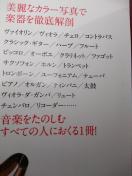 美麗なカラー写真で
楽器を徹底解剖
ヴァイオリン／ヴィオラ／チェロ／コントラバス
クラシック・ギター／ハープ／フルート
ピッコロ／オーボエ／クラリネット／ファゴット
サクソフォン／ホルン／トランペット
トロンボーン／ユーフォニアム／チューバ
ピアノ／オルガン／ティンパニ／太鼓
ヴィオラ・ダ・ガンバ／リュート
チェンバロ／リコーダー……
音楽をたのしむ
すべての人におくる1冊!